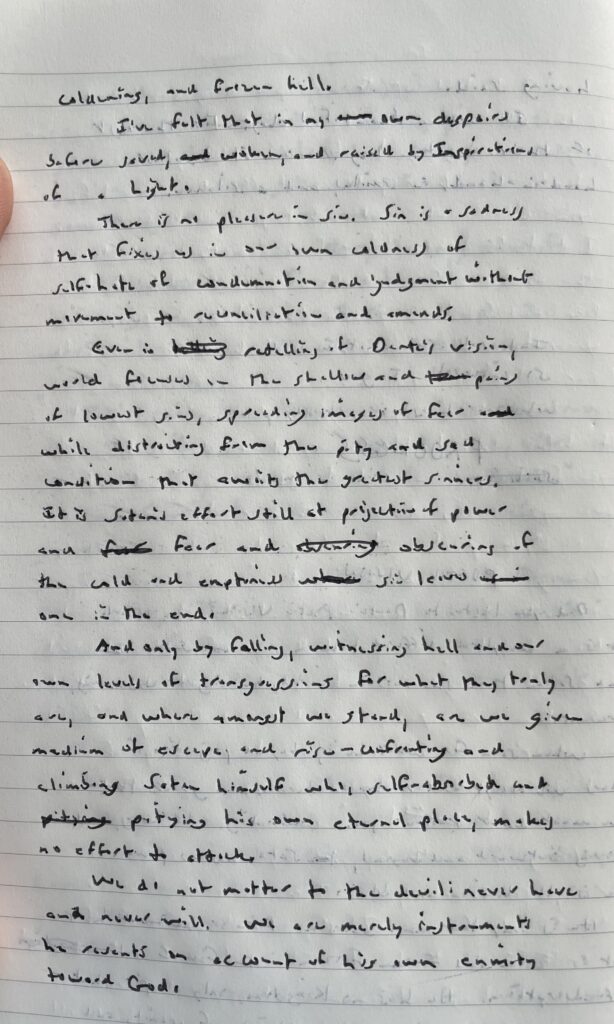 coldening, and frozen hell.
I've felt that in my own despairs
before saved, woken, and raised by Inspirations
of a Light.
There is no pleasure in sin. Sin is a sadness
that fixes us in our own coldness of
self-hate of condemnation and judgment without
movement to reconciliation and amends.
Even in retelling of Dante's vision,
world focuses on the shallow and pains
of lowest sins, spreading images of fear
while distracting from the pity and sad
condition that awaits the greatest sinners.
It is Satan's effort still at projection of power
and fear and obscuring of
the cold and emptiness sin leaves
one in the end.
And only by falling, witnessing hell and our
own levels of transgressions for what they truly
are, and where amongst we stand, are we given
medium of escape and rise—confronting and
climbing Satan himself who, self-absorbed and
pitying his own eternal place, makes
no effort to attack.
We do not matter to the devil: never have
and never will. We are merely instruments
he resents on account of his own enmity
toward God.